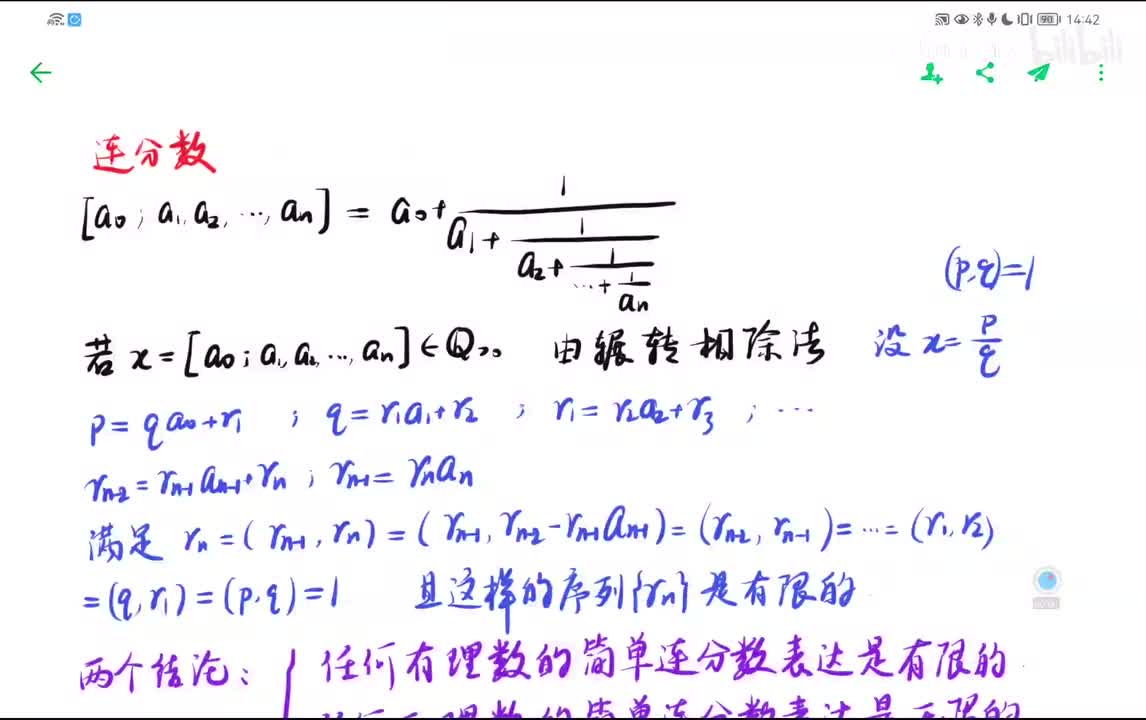 90 14:42
bilibili
连分数
[a₀; a₁, a₂, ..., aₙ] = a₀ + 1/(a₁ + 1/(a₂ + 1/(... + 1/aₙ)))
(p,q)=1
若 x = [a₀; a₁, a₂, ..., aₙ] ∈ Q>0 由辗转相除法 设 x = p/q
p = qa₀+r₁ ; q = r₁a₁+r₂ ; r₁ = r₂a₂+r₃ ; ...
rₙ₋₂ = rₙ₋₁aₙ₋₁+rₙ ; rₙ₋₁ = rₙaₙ
满足 rₙ = (rₙ₋₁, rₙ) = (rₙ₋₁, rₙ₋₂-rₙ₋₁aₙ₋₁) = (rₙ₋₂, rₙ₋₁) = ... = (r₁, r₂)
= (q, r₁) = (p, q) = 1 且这样的序列{rₙ}是有限的
两个结论: { 任何有理数的简单连分数表达是有限的